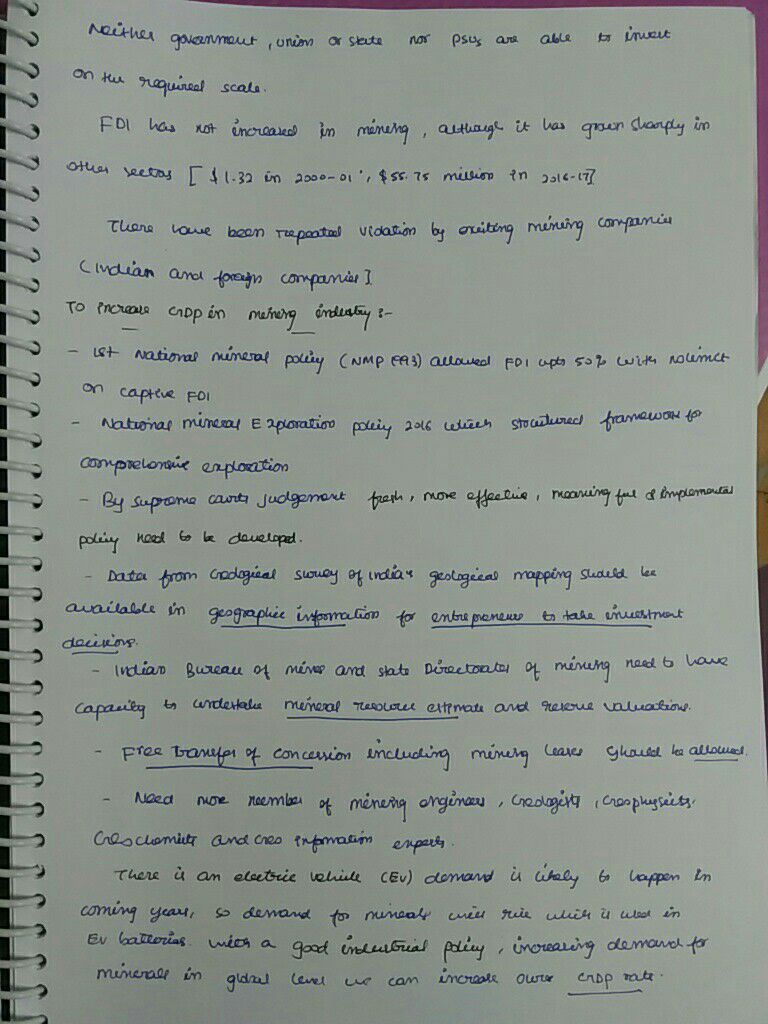 Neither government, union or state nor PSUs are able to invest
on the required scale.
FDI has not increased in mining, although it has grown sharply in
other sectors [$1.32 in 2000-01', $55.75 million in 2016-17]
There have been repeated violation by existing mining companies
(Indian and foreign companies]
To increase GDP in mining industry :-
- 1st National mineral policy (NMP 1993) allowed FDI upto 50% with no limit
on captive FDI
- National mineral Exploration policy 2016 which structured framework for
comprehensive exploration
- By supreme courts judgement fresh, more effective, meaningful &
policy need to be developed.
- Data from Geological survey of India's geological mapping should be
available in geographic information for entrepreneurs to take investment
decisions.
- Indian Bureau of mines and state Directorates of mining need to have
capacity to undertake mineral resource estimate and reserve valuations.
- Free transfer of concession including mining leases should be allowed.
- Need more number of mining engineers, Geologists,
and Geo information experts.
There is an electric vehicle (EV) demand is likely to happen in
coming years, so demand for minerals will rise which is used in
EV batteries. with a good industrial policy, increasing demand for
minerals in global level we can increase GDP rate.